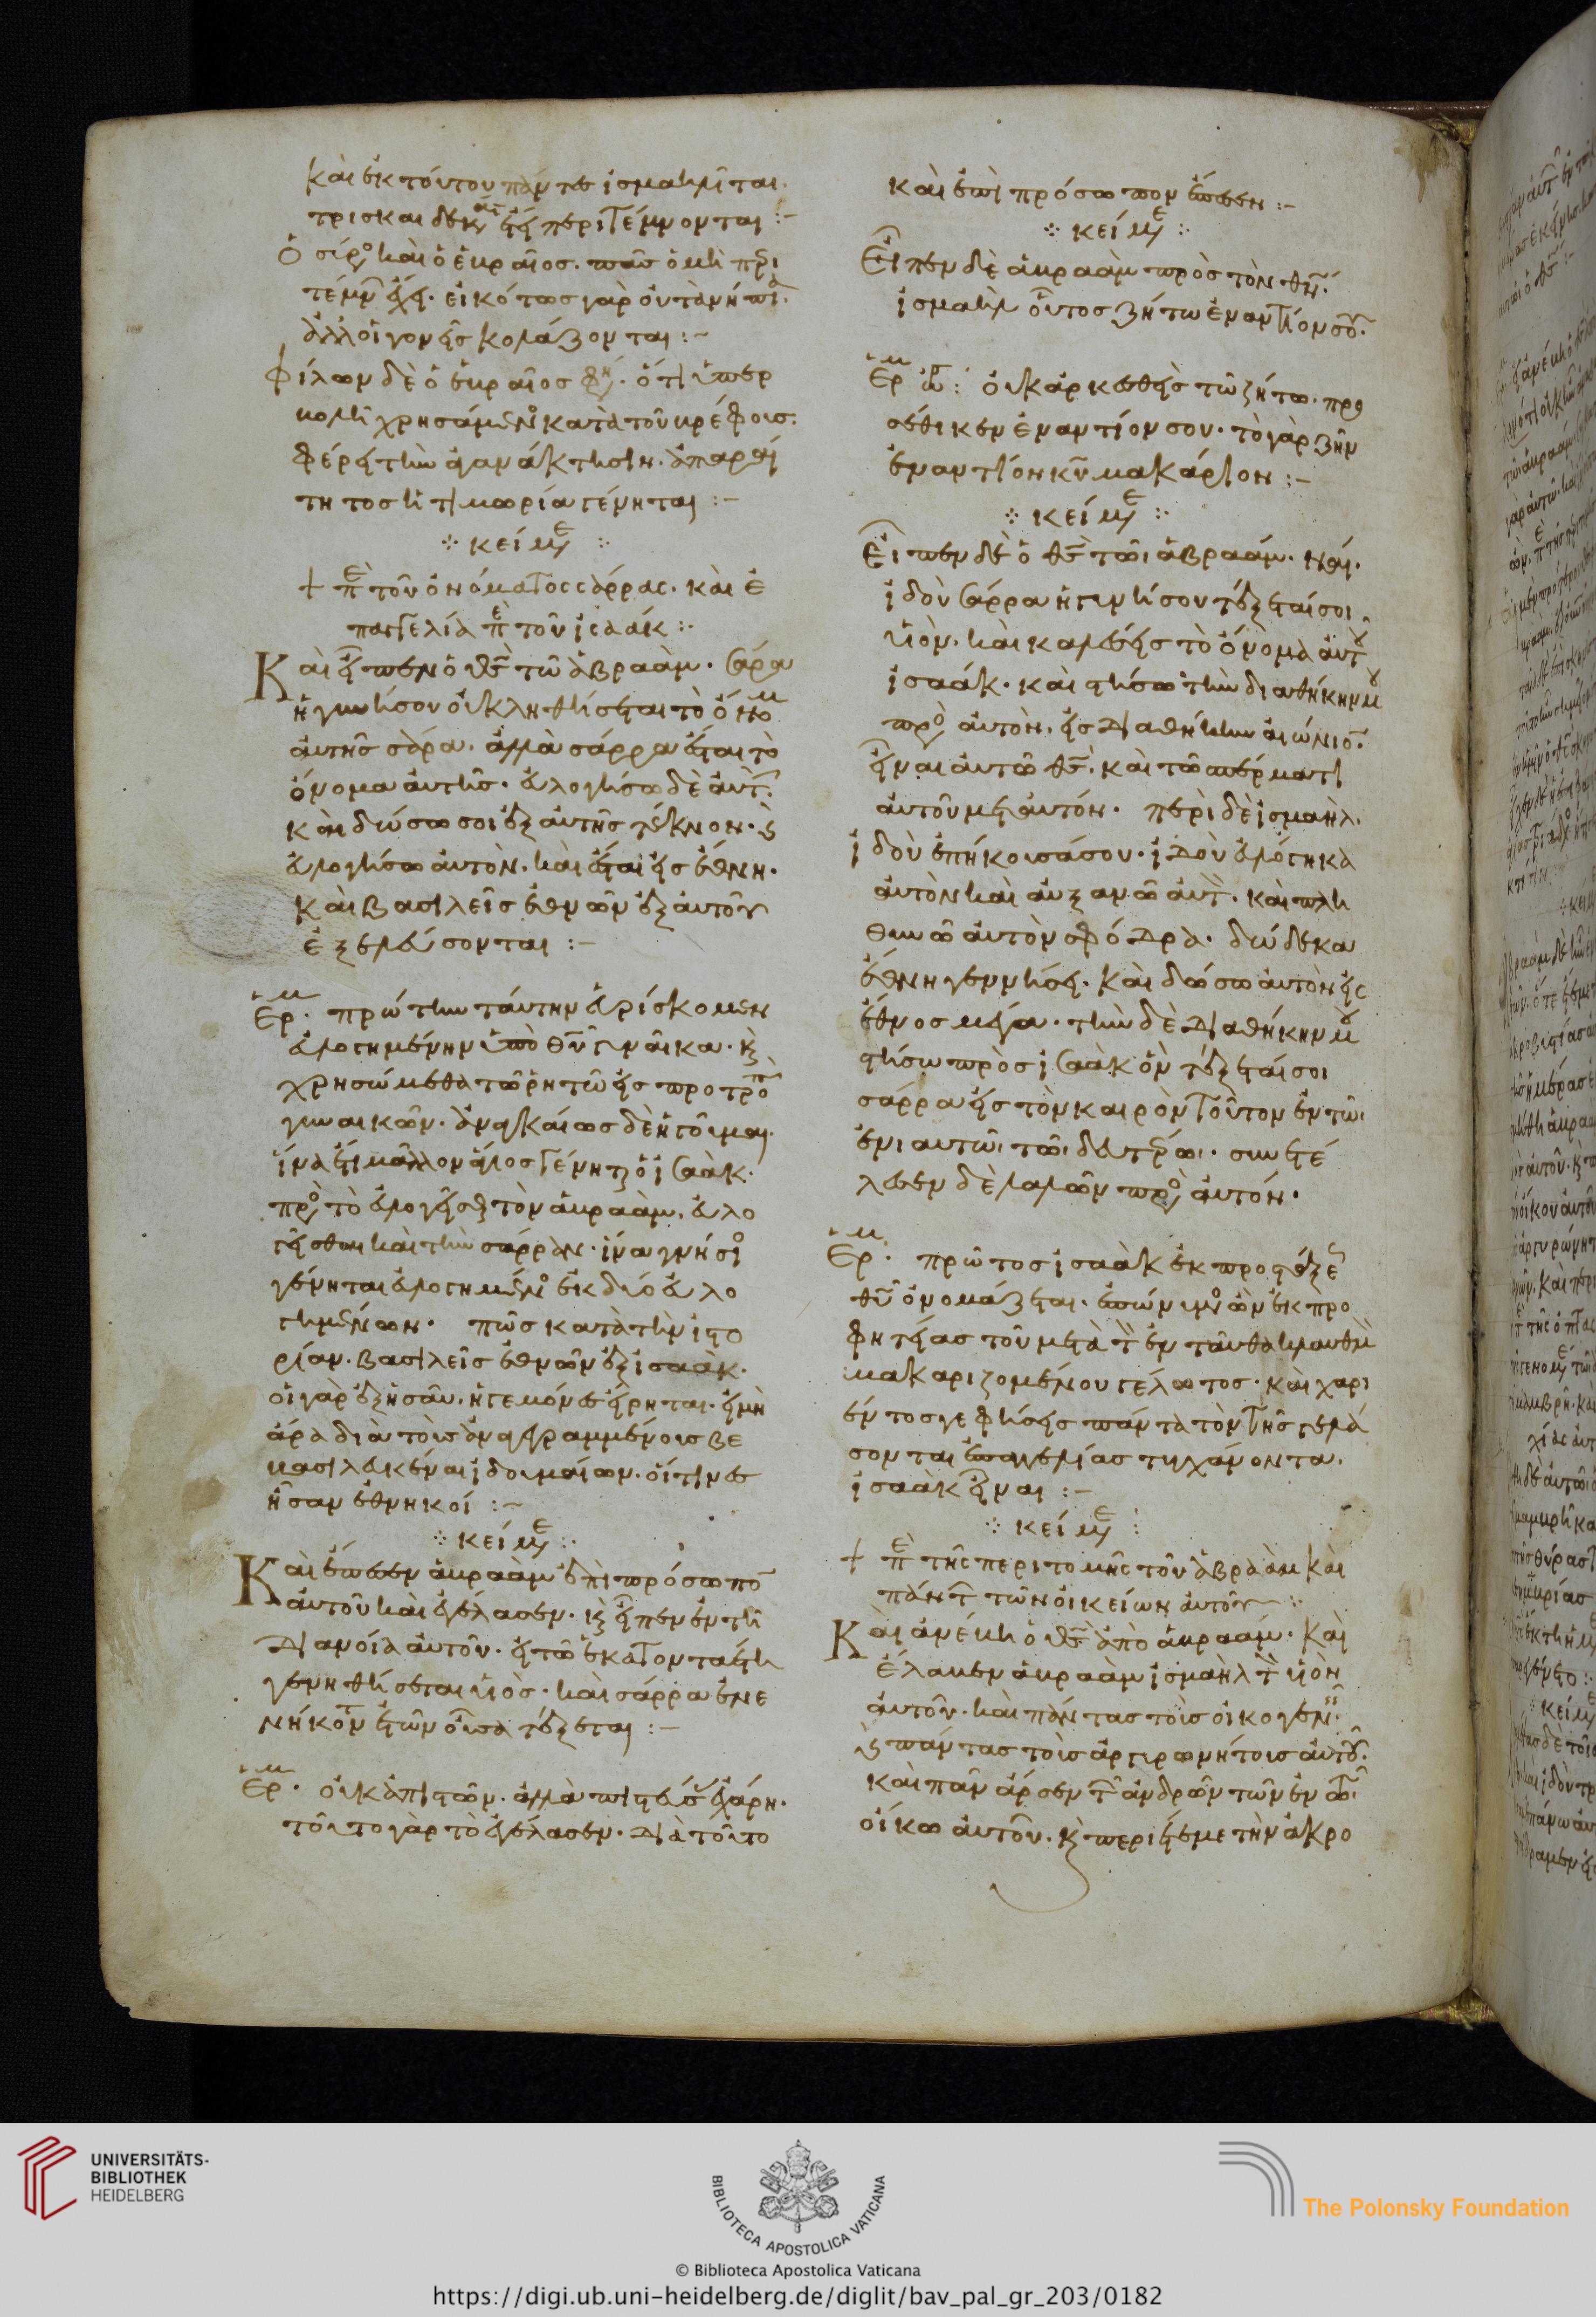 καὶ ἐκ τούτου πάντες ἰσμαηλῖται
τρισκαιδεκαέτη περιτέμνονται :-
Ὁ σύρος καὶ ὁ ἑβραῖος. πᾶς ὁ μὴ περι
τέμνων φησί. εἰκότως γὰρ οὐ τὰ νήπια.
ἀλλ οἱ γονεῖς κολάζονται :~
Φίλων δὲ ὁ ἑβραῖος φησι. ὅτι ὑπερ
βολῇ χρησάμενος κατὰ τοῦ βρέφους.
φέρει τὴν ἀγανάκτησιν. ἀπαραί
τητος ἡ τιμωρία γένηται :-
κείμε
+ πε τοῦ ὀνόματος σάρρας. καὶ ἐ
παγγελία πε τοῦ ἰσαάκ :
Καὶ εἶπεν ὁ θς τῶ ἀβραάμ. σάρα
ἡ γυνή σου οὐ κληθήσεται τὸ ὄνομα
αὐτῆς σάρα. ἀλλὰ σάρρα ἔσται τὸ
ὄνομα αὐτῆς. εὐλογήσω δὲ αὐτήν.
καὶ δώσω σοι ἐξ αὐτῆς τέκνον. καὶ
εὐλογήσω αὐτὸν. καὶ ἔσται εἰς ἔθνη.
καὶ βασιλεῖς ἐθνῶν ἐξ αὐτοῦ
ἐξελεύσονται :-
Ερμ. πρώτην ταύτην εὑρίσκομεν
εὐλογημένην ὑπὸ θυ γυναῖκα. καὶ
χρησώμεθα τῶ ῥητῶ εἰς προτροπὴν
γυναικῶν. ἀναγκαίως δὲ
ἵνα ἔτι μᾶλλον τέλειος γένηται ὁ ἰσαάκ.
πρὸς τὸ εὐλογεῖσθαι τὸν ἀβραάμ. εὐλο
γεῖσθαι καὶ τὴν σάρραν. ἵνα γνήσιος
γένηται εὐλογημένος ἐκ δύο εὐλο
γημένων. πῶς κατὰ τὴν ἱστο
ρίαν. βασιλεῖς ἐθνῶν ἐξ ἰσαάκ.
οἱ γὰρ ἐξ ἡσαῦ. ἡγεμόνες εἴρηται. εἰ μὴ
ἄρα διὰ τοὺς ἀναγεγραμμένους βε
βασιλευκέναι ἰδουμαίων. οἵτινες
ἦσαν ἐθνικοί :~
κείμε
Καὶ ἔπεσεν ἀβραὰμ ἐπὶ πρόσωπον
αὐτοῦ καὶ ἐγέλασεν. καὶ εἶπεν ἐν τῆ
διανοία αὐτοῦ. εἰ τῶ ἑκατονταετῆ
γενηθήσεται υἱὸς. καὶ σάρρα ἐνε
νήκοντα ἐτῶν οὖσα τέξεται :-
Ερμ. οὐκ ἀπιστῶν. ἀλλὰ πιστεύσας ἐχάρη.
τοῦτο γὰρ τὸ ἐγέλασεν. διὰ τοῦτο
καὶ ἐπὶ πρόσωπον ἔπεσεν :-
κείμε
Εἶπεν δὲ ἀβραὰμ πρὸς τὸν θν.
ἰσμαὴλ οὗτος ζήτω ἐναντίον σου.
Ερμ ωρ: οὐκ ἀρκεσθεὶς τῶ ζήτω. προ
σέθηκεν ἐναντίον σου. τὸ γὰρ ζῆν
ἐναντίον κυ μακάριον :-
κείμε
Εἶπεν δὲ ὁ θς τῶι ἀβραάμ. ναί.
ἰδοὺ σάρρα ἡ γυνή σου τέξεταί σοι
υἱὸν. καὶ καλέσεις τὸ ὄνομα αὐτοῦ
ἰσαάκ. καὶ στήσω τὴν διαθήκην μου
πρὸς αὐτὸν. εἰς διαθήκην αἰώνιον.
εἶναι αὐτῶ θς. καὶ τῶ σπέρματι
αὐτοῦ μετ αὐτόν. περὶ δὲ ἰσμαὴλ.
ἰδοὺ ἐπήκουσά σου. ἰδοὺ εὐλόγηκα
αὐτὸν καὶ αὐξανῶ αὐτὸν. καὶ πλη
θυνῶ αὐτὸν σφόδρα. δώδεκα
ἔθνη γεννήσει. καὶ δώσω αὐτὸν εἰς
ἔθνος μέγα. τὴν δὲ διαθήκην μου
στήσω πρὸς ἰσαὰκ ὃν τέξεταί σοι
σάρρα εἰς τὸν καιρὸν τοῦτον ἐν τῶι
ἐνιαυτῶι τῶι δευτέρωι. συνετέ
λεσεν δὲ λαλῶν πρὸς αὐτόν.
Ερμ. πρῶτος ἰσαὰκ ἐκ προστάξεως
θυ ὀνομάζεται. ἐπώνυμος ὢν ἐκ προ
φητείας τοῦ μετὰ τὸ
μακαριζομένου γέλωτος. καὶ χαρι
έντος πάντα τὸν τῆς γελά
σονται ἐπαγγελίας τυγχάνοντα.
ἰσαὰκ εἶναι :-
κείμε
+ πε τῆς περιτομῆς τοῦ ἀβραὰμ καὶ
πάντων τῶν οἰκείων αὐτοῦ :
Καὶ ἀνέβη ὁ θς ἀπὸ ἀβραάμ. καὶ
ἔλαβεν ἀβραὰμ ἰσμαὴλ τὸν υἱὸν
αὐτοῦ. καὶ πάντας τοὺς οἰκογενεῖς.
καὶ πάντας τοὺς ἀργυρωνήτους αὐτοῦ.
καὶ πᾶν ἄρσεν τῶν ἀνδρῶν τῶν ἐν τῶ
οἴκω αὐτοῦ. καὶ περιέτεμε τὴν ἀκρο
UNIVERSITÄTS-
BIBLIOTHEK
HEIDELBERG
BIBLIOTECA APOSTOLICA VATICANA
The Polonsky Foundation
© Biblioteca Apostolica Vaticana
https://digi.ub.uni-heidelberg.de/diglit/bav_pal_gr_203/0182